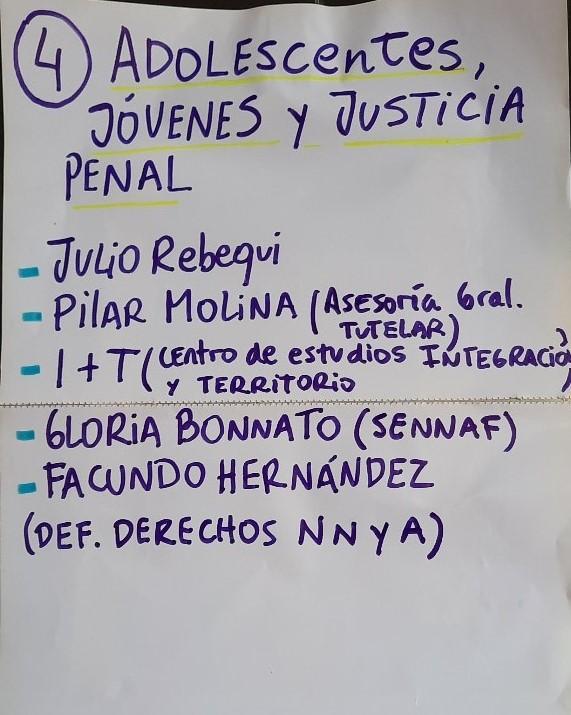 4 ADOLESCENTES,
JÓVENES Y JUSTICIA
PENAL
- JULIO Rebequi
- PILAR MOLINA (ASESORÍA Gral.
TUTELAR)
- I + T (CENTRO de estudios INTEGRACIÓN
Y TERRITORIO)
- GLORIA BONNATO (SENNAF)
- FACUNDO HERNÁNDEZ
(DEF. DERECHOS NN Y A)